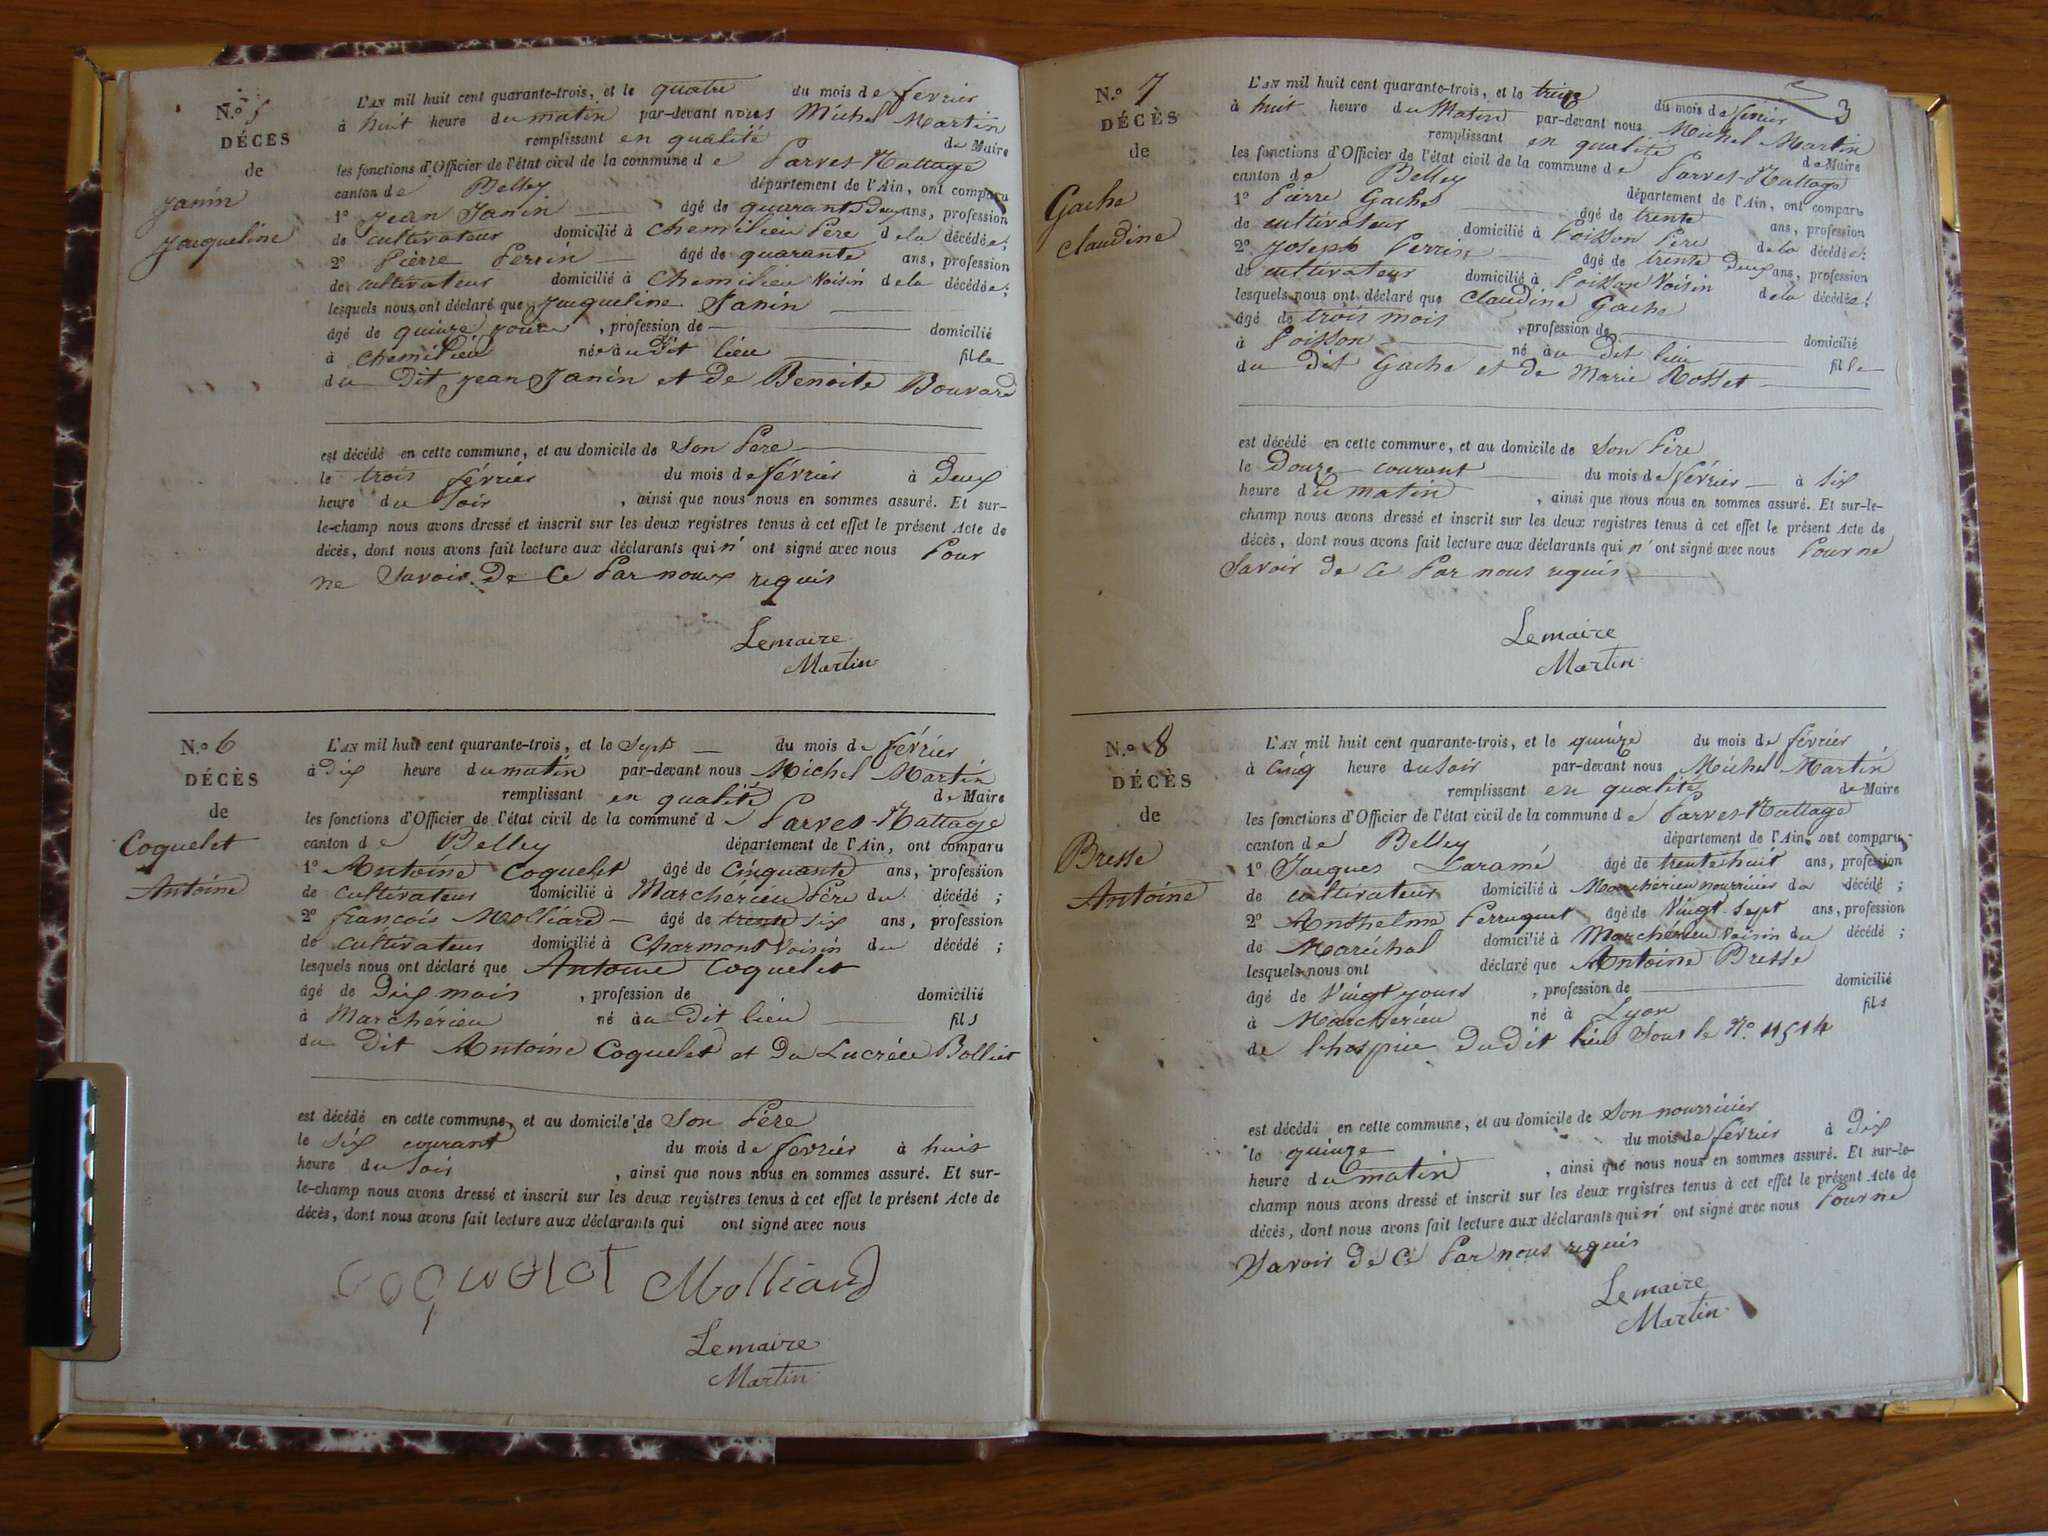 N.º 5
DÉCÈS
de
Janin
Jacqueline
L'AN mil huit cent quarante-trois, et le quatre du mois de février
à huit heure du matin par-devant nous Michel Martin
remplissant en qualité de Maire
les fonctions d'Officier de l'état civil de la commune de Parves-Nattage
canton de Belley département de l'Ain, ont comparu
1º Jean Janin âgé de quarante deux ans, profession
de cultivateur domicilié à Chemilieu Père de la décédée;
2º Pierre Perrin âgé de quarante ans, profession
de cultivateur domicilié à Chemilieu Voisin de la décédée;
lesquels nous ont déclaré que Jacqueline Janin
âgé de quinze jours, profession de domicilié
à Chemilieu née au dit lieu fille
du Dit Jean Janin et de Benoite Bouvard
est décédé en cette commune, et au domicile de Son Père
le trois février du mois de février à Deux
heure du Soir, ainsi que nous nous en sommes assuré. Et sur-
le-champ nous avons dressé et inscrit sur les deux registres tenus à cet effet le présent Acte de
décès, dont nous avons fait lecture aux déclarants qui n' ont signé avec nous Pour
ne Savoir De Ce Par nous requis
Lemaire
Martin
N.º 6
DÉCÈS
de
Coquelet
Antoine
L'AN mil huit cent quarante-trois, et le Sept du mois de février
à Dix heure du matin par-devant nous Michel Martin
remplissant en qualité de Maire
les fonctions d'Officier de l'état civil de la commune de Parves-Nattage
canton de Belley département de l'Ain, ont comparu
1º Antoine Coquelet âgé de Cinquante ans, profession
de cultivateur domicilié à Marchérieu Père du décédé;
2º françois Molliard âgé de trente Six ans, profession
de cultivateur domicilié à Charmont Voisin du décédé;
lesquels nous ont déclaré que Antoine Coquelet
âgé de Dix mois, profession de domicilié
à Marchérieu né au Dit lieu fils
du Dit Antoine Coquelet et Du Lucréce Bolliet
est décédé en cette commune, et au domicile de Son Père
le Six courant du mois de février à huit
heure du Soir, ainsi que nous nous en sommes assuré. Et sur-
le-champ nous avons dressé et inscrit sur les deux registres tenus à cet effet le présent Acte de
décès, dont nous avons fait lecture aux déclarants qui ont signé avec nous
coquelet Molliard
Lemaire
Martin
3
N.º 7
DÉCÈS
de
Gache
Claudine
L'AN mil huit cent quarante-trois, et le treize du mois de février
à huit heure du Matin par-devant nous Michel Martin
remplissant en qualité de Maire
les fonctions d'Officier de l'état civil de la commune de Parves-Nattage
canton de Belley département de l'Ain, ont comparu
1º Pierre Gache âgé de trente ans, profession
de cultivateur domicilié à Poisson Père de la décédée;
2º Joseph Perrin âgé de trente Deux ans, profession
de cultivateur domicilié à Poisson Voisin de la décédée;
lesquels nous ont déclaré que Claudine Gache
âgé de trois mois, profession de domicilié
à Poisson né au Dit lieu fille
du dit Gache et de Marie Rosset
est décédé en cette commune, et au domicile de Son Père
le Douze courant du mois de février à Six
heure du matin, ainsi que nous nous en sommes assuré. Et sur-le-
champ nous avons dressé et inscrit sur les deux registres tenus à cet effet le présent Acte de
décès, dont nous avons fait lecture aux déclarants qui n' ont signé avec nous Pour ne
Savoir de Ce Par nous requis
Lemaire
Martin
N.º 8
DÉCÈS
de
Bresse
Antoine
L'AN mil huit cent quarante-trois, et le quinze du mois de février
à Cinq heure du Soir par-devant nous Michel Martin
remplissant en qualité de Maire
les fonctions d'Officier de l'état civil de la commune de Parves-Nattage
canton de Belley département de l'Ain, ont comparu
1º Jacques Laramé âgé de trente huit ans, profession
de cultivateur domicilié à Marchérieu nourricier du décédé;
2º Anthelme Perruquet âgé de Vingt Sept ans, profession
de Maréchal domicilié à Marchérieu Voisin du décédé;
lesquels nous ont déclaré que Antoine Bresse
âgé de Vingt jours, profession de domicilié
à Marchérieu né à Lyon fils
de l'hospice Du Dit lieu Sous le Nº. 11514
est décédé en cette commune, et au domicile de Son nourricier
le quinze du mois de février à Dix
heure du matin, ainsi que nous nous en sommes assuré. Et sur-le-
champ nous avons dressé et inscrit sur les deux registres tenus à cet effet le présent Acte de
décès, dont nous avons fait lecture aux déclarants qui n' ont signé avec nous Pour ne
Savoir De Ce Par nous requis
Lemaire
Martin